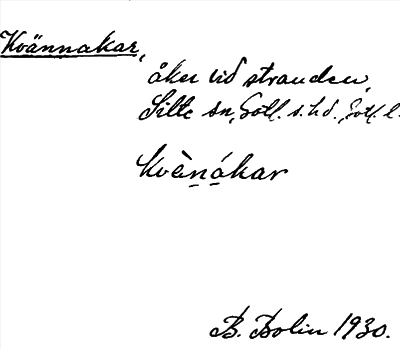 Kvännakar,
åker vid stranden,
Silte sn, Gotl. s. hd. Gotl. l.
Kvènákar
B. Bolin 1930.